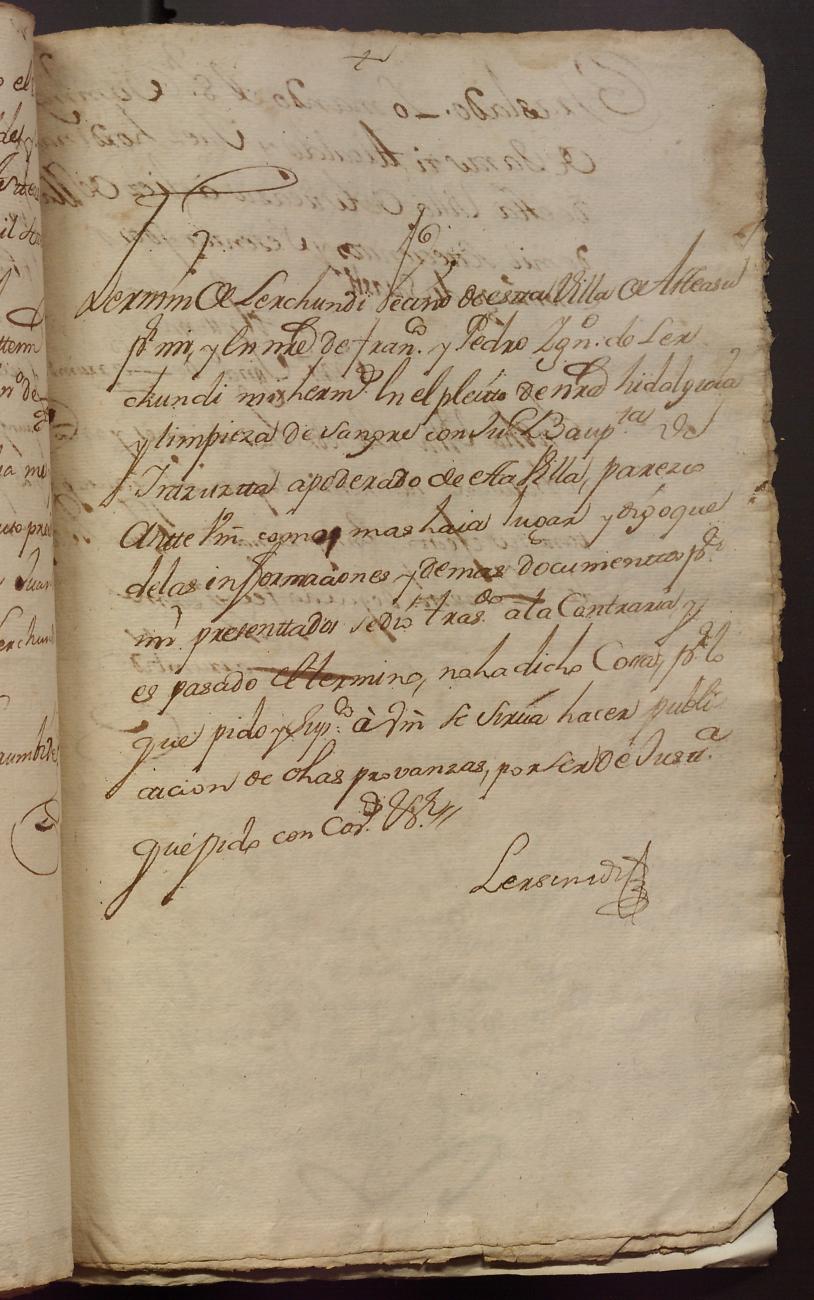 +
Fermin de Lerchundi vecino de esta Villa de Asteasu
pr. mi, y en nre de fran.co y Pedro Ygn.o de Ler
chundi mis herm.s En el pleito de nra hidalguia
y limpieza de sangre con Ju.o Baup.ta de
Inzurza apoderado de esta Villa, parezco
Antte Vm. como mas haia lugar y digo que
de las informaciones y demas documenttos pr.
mi presenttados se dio tras.do a la Contraria, y
es pasado el termino, no ha dicho Cosa, pr. lo
que pido y Sup.co à Vm se sirva hacer publi
cacion de dhas provanzas, por ser de Justt.a
que pido con Cos.tas &.a
Lerchundi